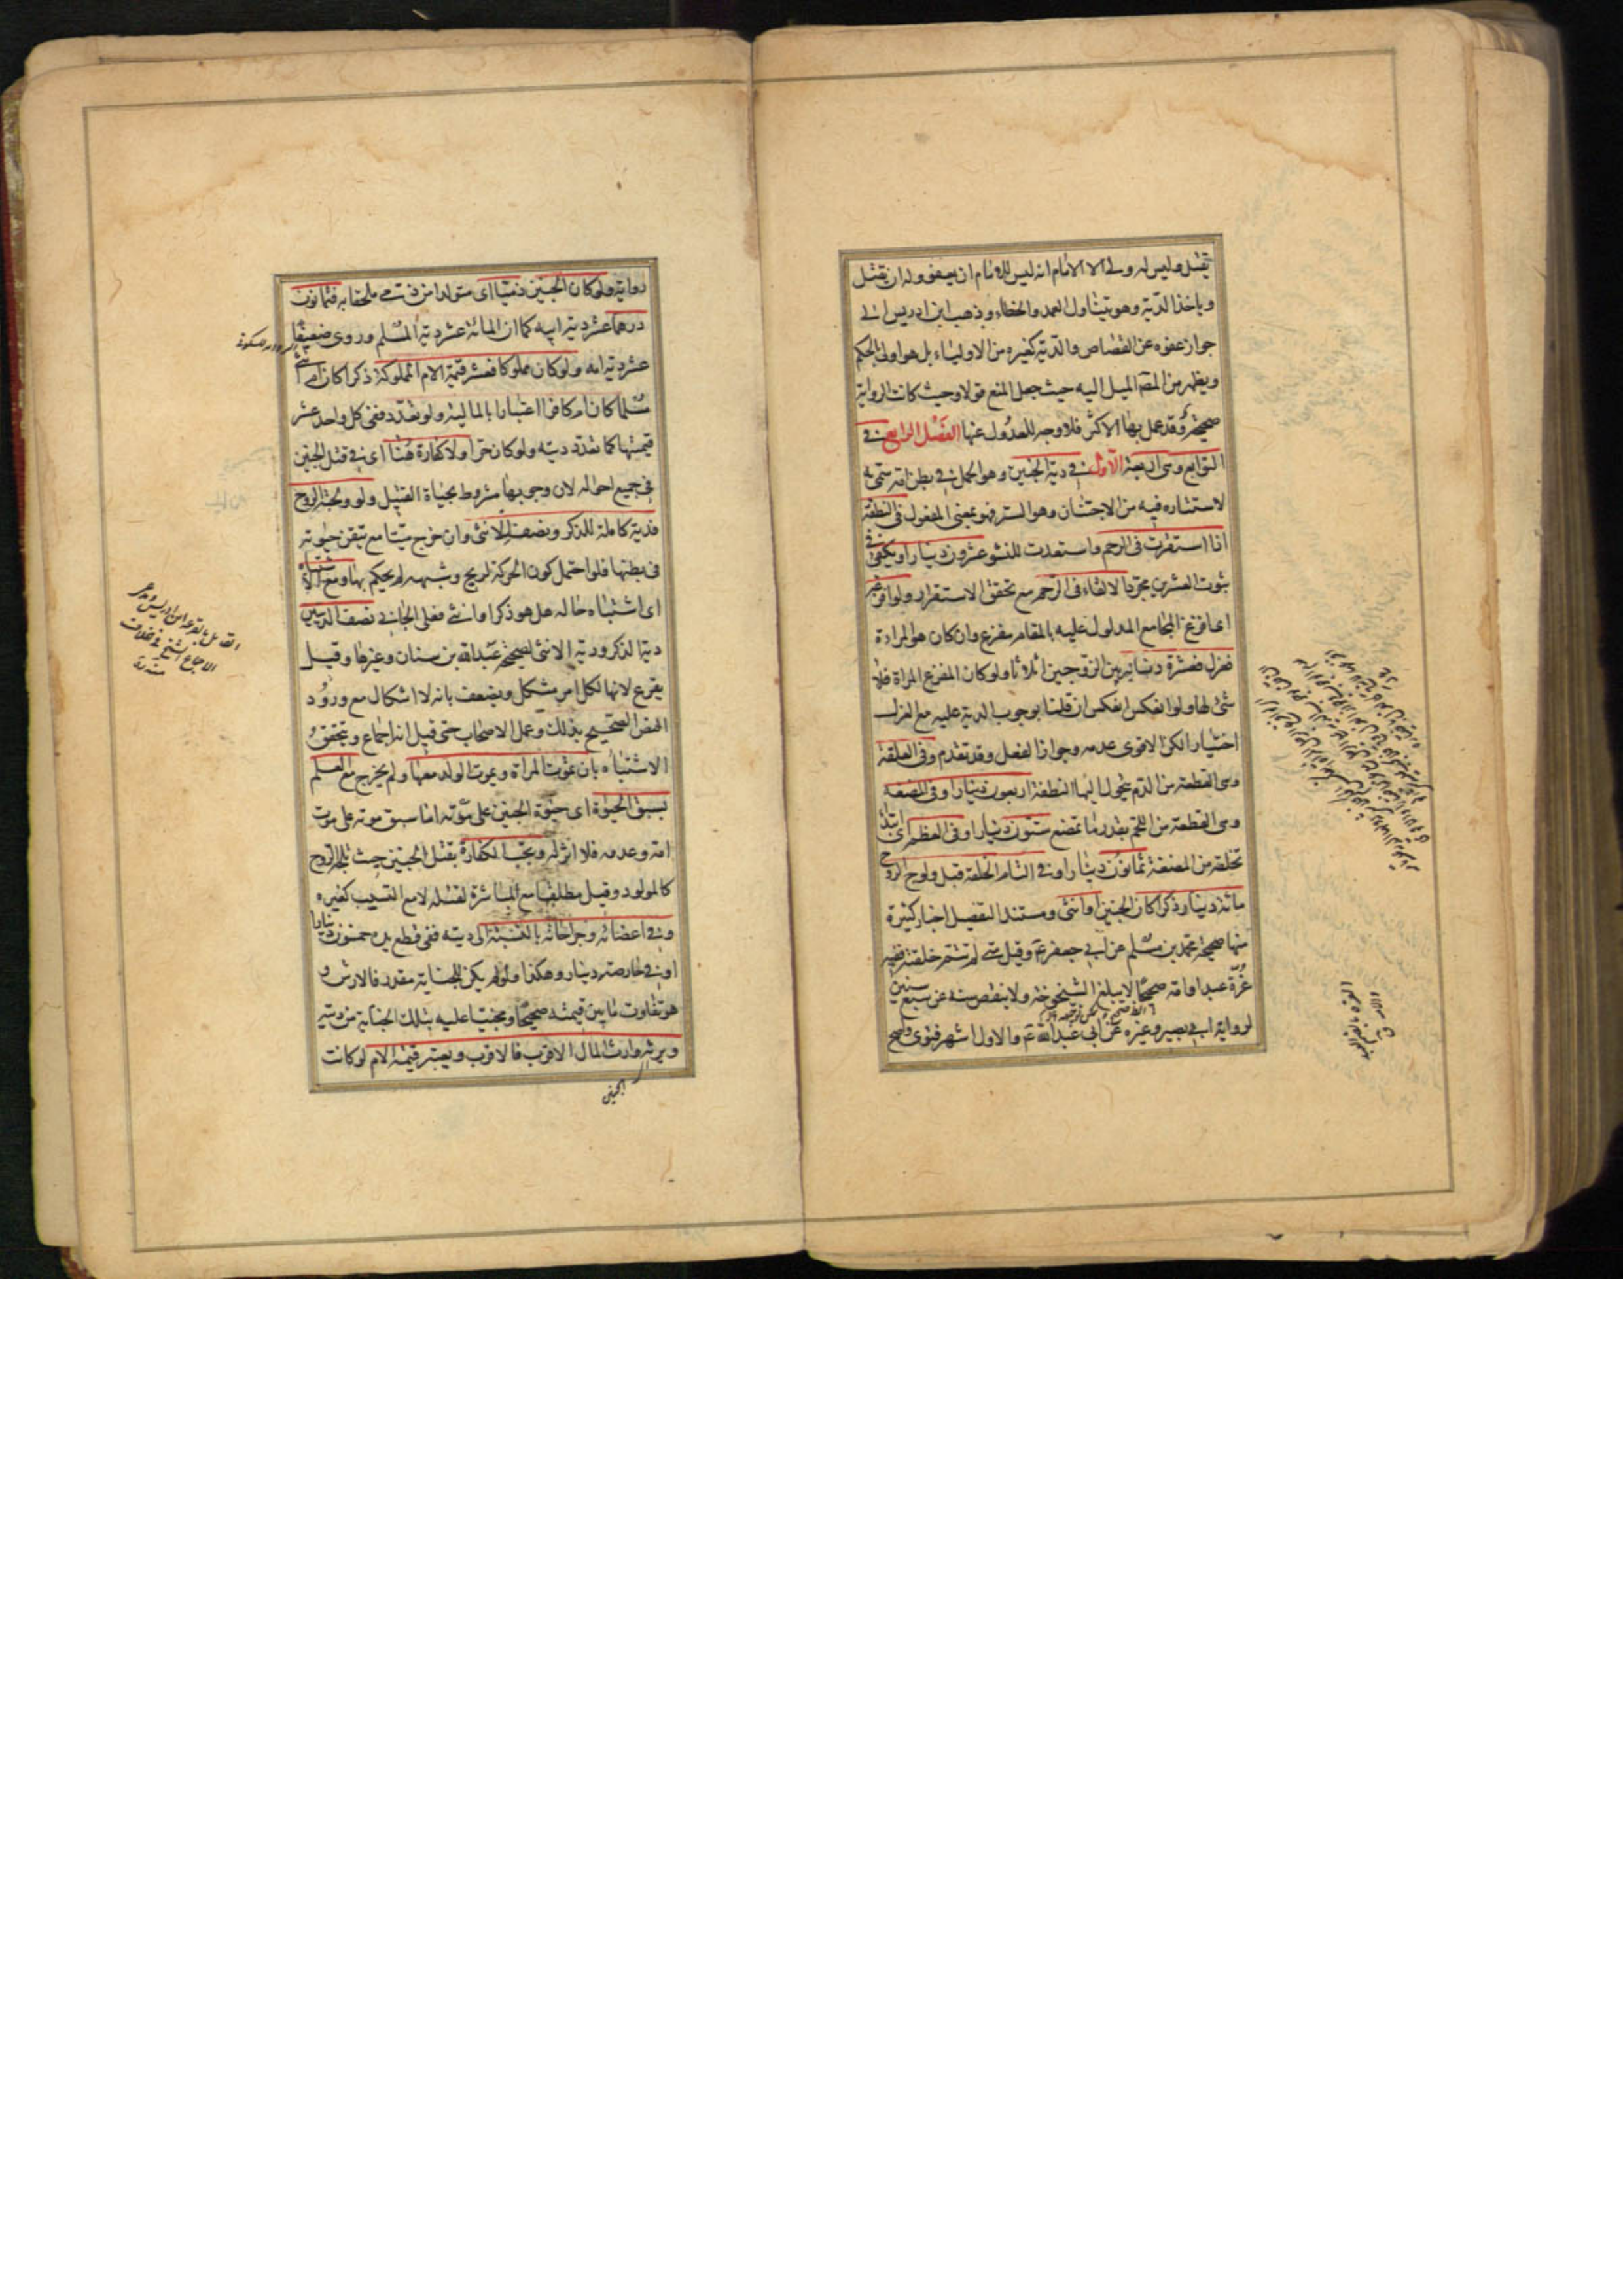 يقتل وليس له ولى الا الامام انه ليس للامام ان يعفو وله ان يقتل
وياخذ الدية وهو يتناول العمد والخطاء وذهب ابن ادريس الى
جواز عفوه عن القصاص والدية كغيره من الاولياء بل هو اولى بالحكم
ويظهر من المصّ الميل اليه حيث جعل المنع قولا وحيث كانت الرواية
صحيحة وقد عمل بها الاكثر فلا وجه للعدول عنها الفصل الرابع فى
التوابع وهى اربعة الاوّل فى دية الجنين وهو الحمل فى بطن امه سمى به
لاستتاره فيه من الاجتنان وهو الستر فهو بمعنى المفعول فى النطفة
اذا استقرت فى الرحم واستعدت للنشو عشرون دينارا ويكفى فى
ثبوت العشرين مجرد الالقاء فى الرحم مع تحقق الاستقرار ولو افزعه
اى افزع المجامع المدلول عليه بالمقام مفزع وان كان هو المراة
فعزل فعشرة دنانير بين الزوجين اثلاثا ولو كان المفزع المراة فلا
شئ لها ولو انعكس انعكس ان قلنا بوجوب الدية عليه مع العزل
اختيارا لكن الاقوى عدمه وجواز الفعل وقد تقدم وفى العلقة
وهى القطعة من الدم يتحول اليها النطفة اربعون دينارا وفى المضغة
وهى القطعة من اللحم بقدر ما تمضغ ستون دينارا وفى العظم اى ابتداء
تخلقه من المضغة ثمانون دينارا وفى التام الخلقة قبل ولوج الروح
مائة دينار ذكرا كان الجنين او انثى ومستند التفصيل اخبار كثيرة
منها صحيحة محمد بن مسلم عن ابى جعفر ع وقيل متى لم تتم خلقته ففيه
غرّة عبد او امة صحيحا لا يبلغ الشيخوخة ولا ينقص سنه عن سبع سنين
لرواية ابى بصير وغيره عن ابى عبد الله ع والاول اشهر فتوى واصح
رواية ولو كان الجنين ذميّا اى متولدا من ذمى ملحقا به فثمانون
درهما عشر دية ابيه كما ان المائة عشر دية المسلم وروى ضعيفا
عشر دية امه ولو كان مملوكا فعشر قيمة الام المملوكة ذكرا كان ام انثى
مسلما كان ام كافرا اعتبارا بالمالية ولو تعدد ففى كل واحد عشر
قيمتها كما تتعدد ديته ولو كان حرّا ولا كفارة هنا اى فى قتل الجنين
فى جميع احواله لان وجوبها مشروط بحياة القتيل ولو ولجته الروح
فدية كاملة للذكر ونصف للانثى وان خرج ميتا مع تيقن حيوته
فى بطنها فلو احتمل كون الحركة لريح وشبهه لم يحكم بها ومع الاشتباه
اى اشتباه حاله هل هو ذكر او انثى فعلى الجانى نصف الديتين
دية الذكر ودية الانثى لصحيحة عبد الله بن سنان وغيرها وقيل
يقرع لانها لكل امر مشكل ويضعف بانه لا اشكال مع ورود
النص الصحيح بذلك وعمل الاصحاب حتى قيل انه اجماع ويتحقق
الاشتباه بان تموت المراة ويموت الولد معها ولم يخرج مع العلم
بسبق الحيوة اى حيوة الجنين على موته اما سبق موته على موت
امه وعدمه فلا اثر له وتجب الكفارة بقتل الجنين حيث تلجه الروح
كالمولود وقيل مطلقا مع المباشرة لقتله لا مع التسبيب كغيره
وفى اعضائه وجراحاته بالنسبة الى ديته ففى قطع يده خمسون دينارا
وفى حارصته دينار وهكذا ولو لم يكن للجناية مقدر فالارش و
هو تفاوت ما بين قيمته صحيحا ومجنيا عليه بتلك الجناية من ديته
ويرثه وارث المال الاقرب فالاقرب ويعتبر قيمة الام لو كانت
القائل بالقرعة ابن ادريس
الاجماع الشيخ فى الخلاف